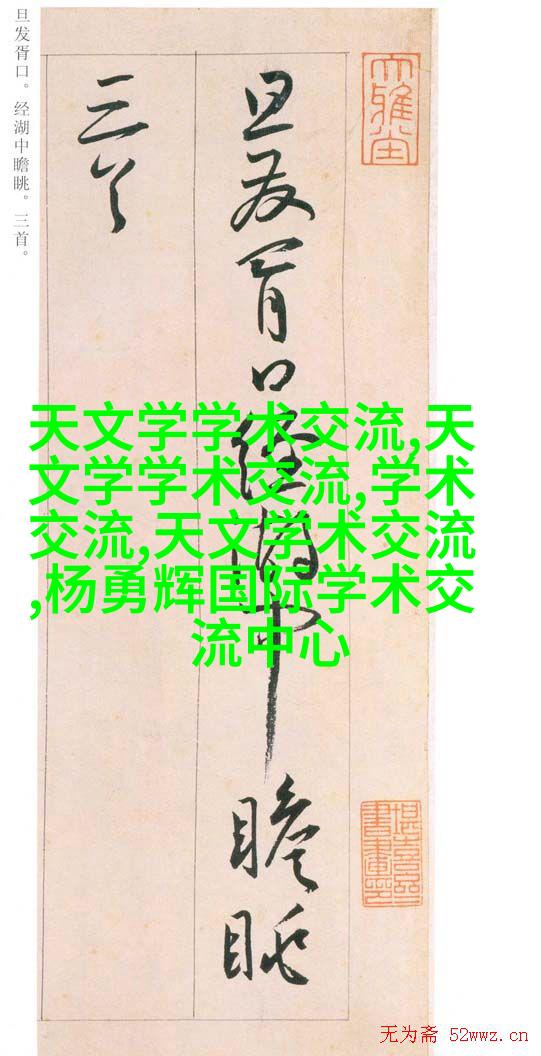 旦发胥口。经湖中瞻眺。三首。
旦发胥口经湖中瞻眺
三首
天文学学术交流,天
文学学术交流,学术
交流,天文学术交流
,杨勇辉国际学术交
流中心
无为斋 52wwz.cn